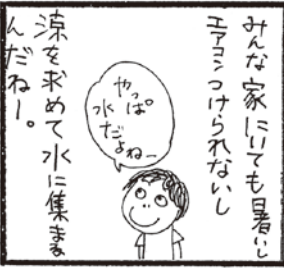 みんな家にいても暑いし
エアコンつけられないし
やっぱ。
水
だよねー
涼を求めて水に集まる
んだねー。